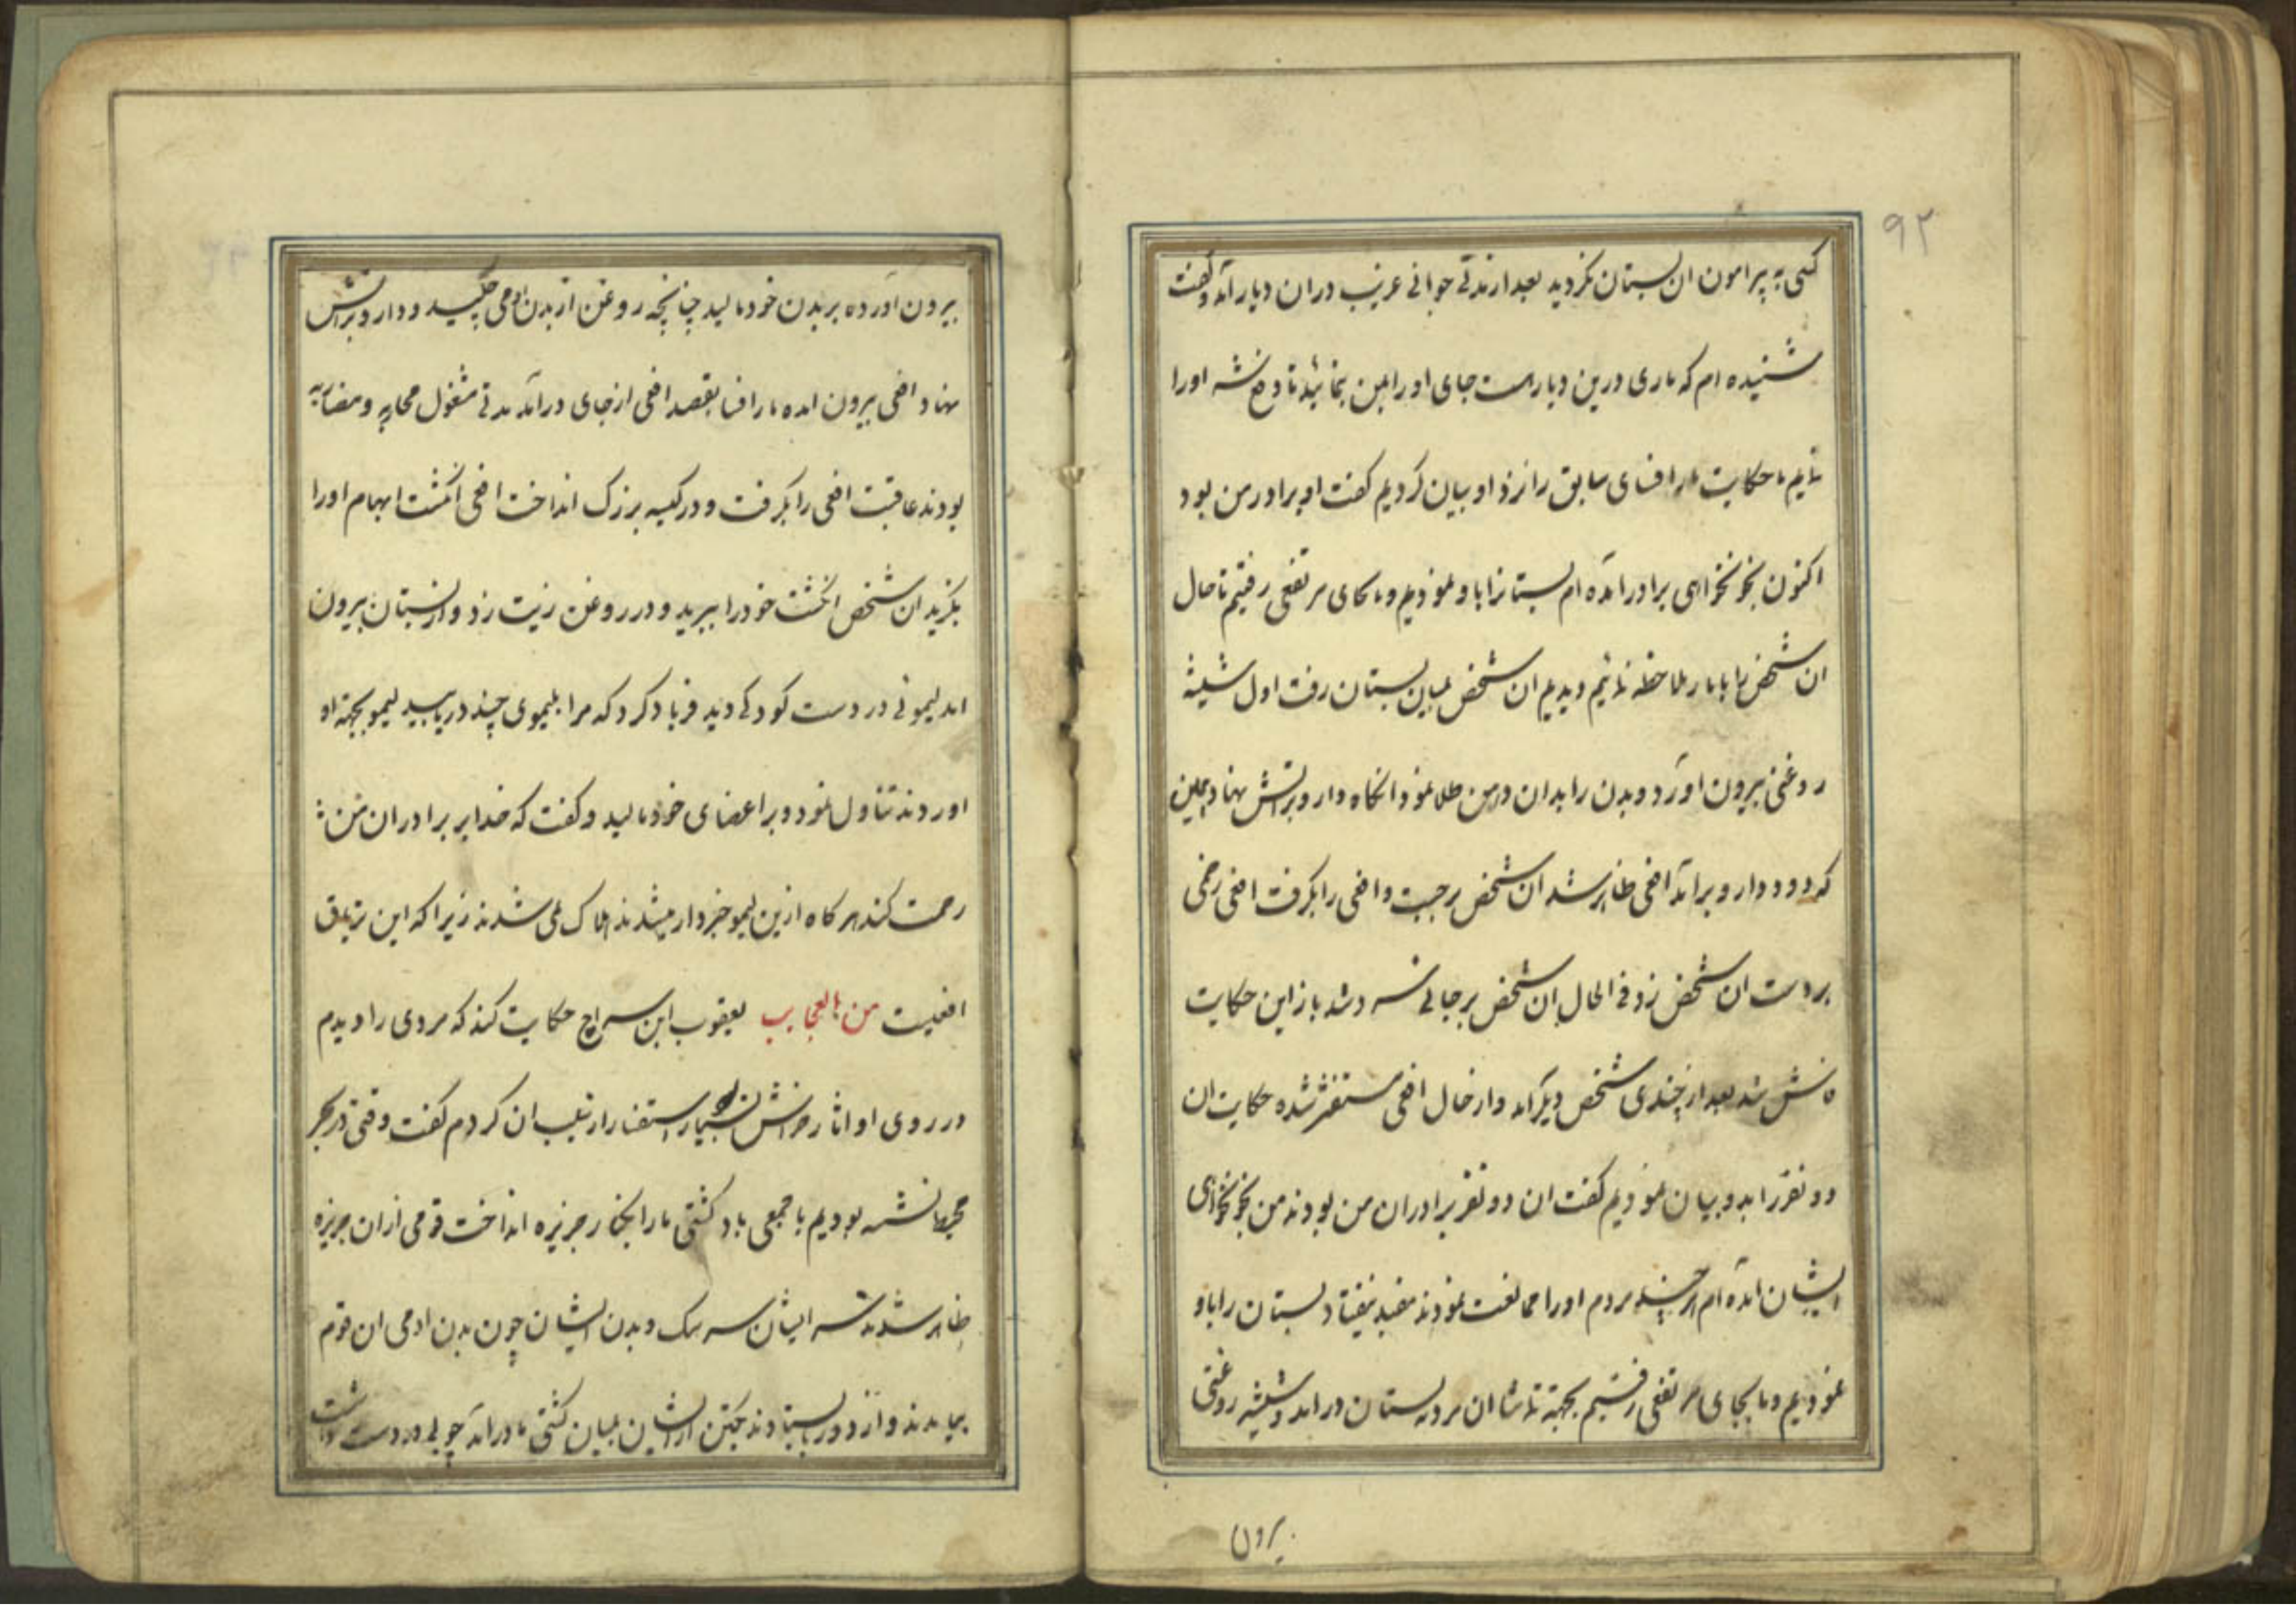 ۹۲
کسی به پیرامون ان بستان نکردید بعد از مدتی جوانی غریب دران دیار آمد وکفت
شنیده ام که ماری درین دیار است جای او را بمن بنمائید تا دفع شر او را
نمایم ما حکایت مار افسای سابق را نزد او بیان کردیم کفت او برادر من بود
اکنون بخونخواهی برادر آمده ام بستانرا باو نمودیم و ما بجای مرتفعی رفتیم تا حال
ان شخص را با مار ملاحظه نمائیم دیدیم ان شخص بمیان بستان رفت اول شیشۀ
روغنی بیرون اورد و بدن را بدان دهن طلا نمود انکاه دارو براتش نهاد همین
که دود دارو برآمد افعی ظاهر شد ان شخص برجست و افعی را بکرفت افعی زخمی
بر دست ان شخص زد فی الحال ان شخص برجای سرد شد باز این حکایت
فاش شد بعد از چندی شخص دیگر آمد و از حال افعی مستفسر شده حکایت ان
دو نفر را بدو بیان نمودیم کفت ان دو نفر برادران من بودند من بخونخواهی
ایشان آمده ام هر چند مردم او را ممانعت نمودند مفید نیفتاد بستان را باو
نمودیم و ما بجای مرتفعی رفتیم بجهة تماشا ان مرد ببستان درامد و شیشه روغنی
بیرون
بیرون آورده بر بدن خود مالید چنانچه روغن از بدن او می چکید و دارو براتش
نهاد افعی بیرون امده مار افسا بقصد افعی از جای درآمد مدتی مشغول محاربه و مضاربه
بودند عاقبت افعی را بکرفت و در کیسه بزرک انداخت افعی انکشت ابهام او را
بکزید ان شخص انکشت خود را ببرید و در روغن زیت زد و از بستان بیرون
امد لیموئی در دست کودکی دید فریاد کرد که مرا بلیموی چند دریابید لیمو بجهة او
اوردند تناول نمود و بر اعضای خود مالید و کفت که خدا بر برادران من
رحمت کند هر کاه ازین لیمو خبردار میشدند هلاک نمی شدند زیرا که این تریاق
افعیست من العجایب یعقوب ابن سراج حکایت کند که مردی را دیدم
در روی او اثار خراش بسیار استفسار از سبب ان کردم کفت وقتی در بحر
محیط نشسته بودیم با جمعی باد کشتی ما را بکنار جزیره انداخت قومی ازان جزیره
ظاهر شدند سر ایشان سر سک و بدن ایشان چون بدن ادمی ان قوم
بیامدند و از دور بایستادند یکتن از ایشان بمیان کشتی ما درآمد چوبی در دست داشت